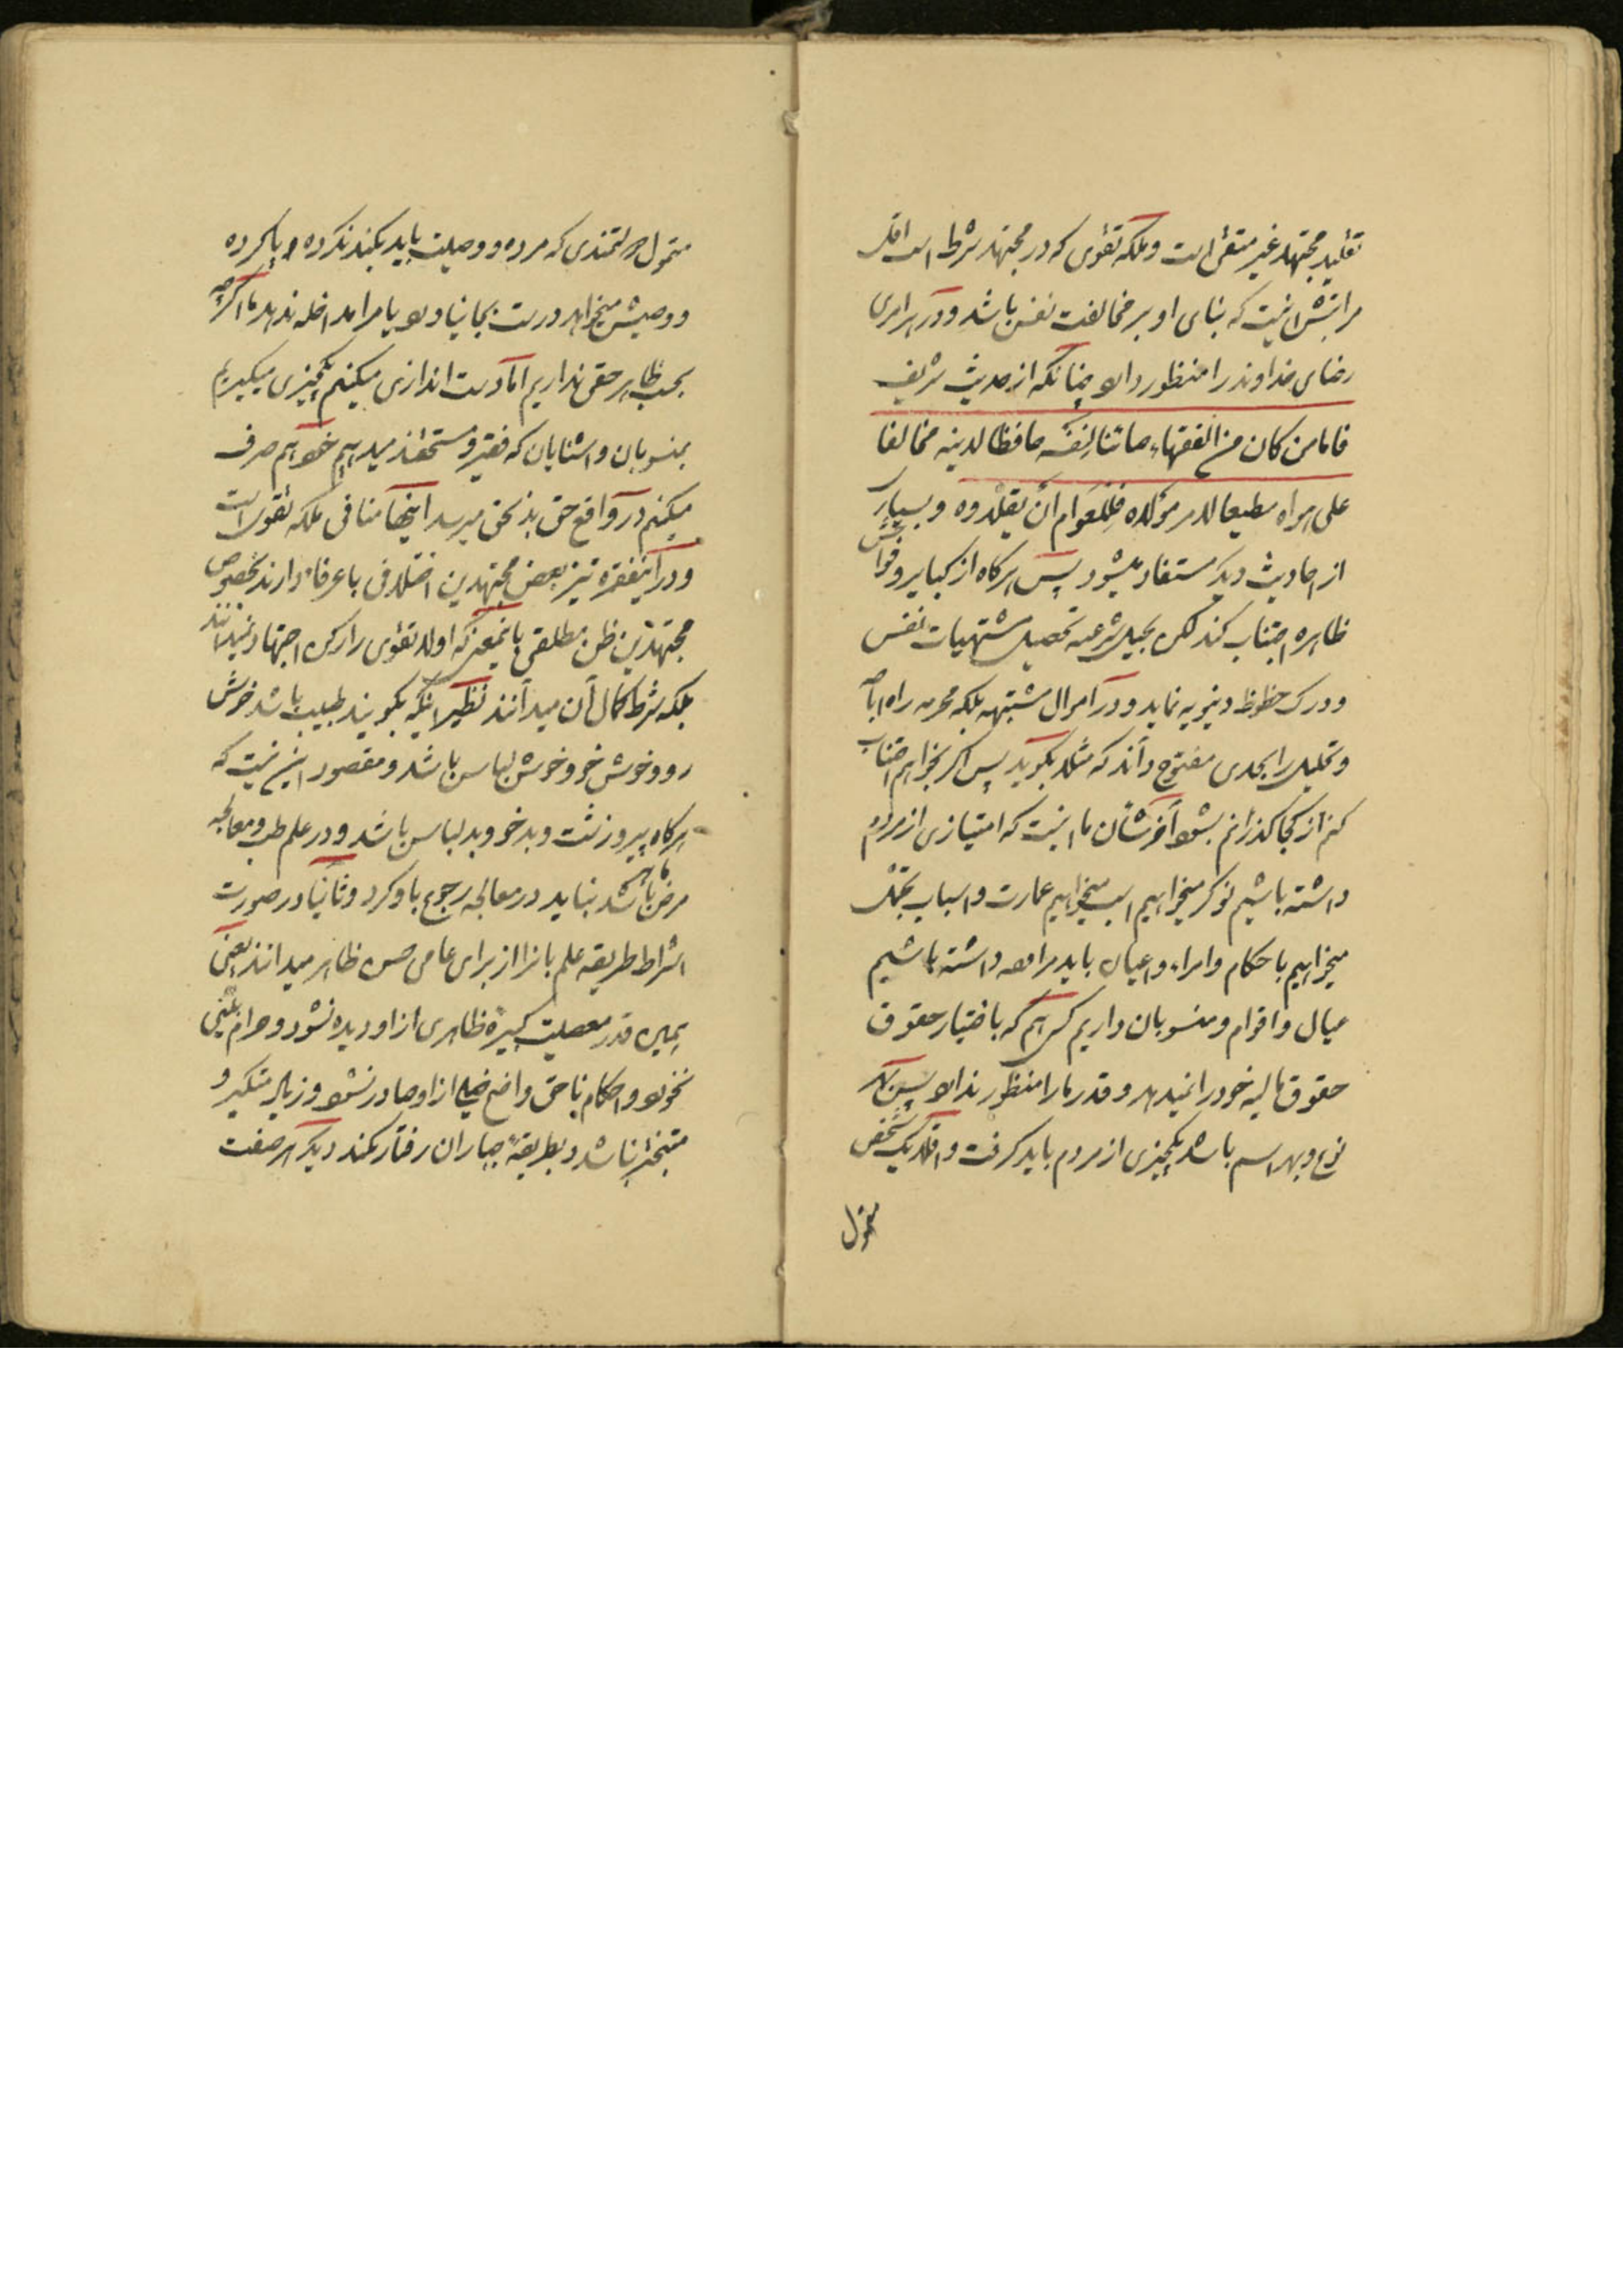 تقلید مجتهد غیر متقی است و ملکه تقوی که در مجتهد شرط است اقل
مراتبش اینست که بنای او بر مخالفت نفس باشد و در هر امری
رضای خداوند را منظور دارد چنانکه از حدیث شریف
فاما من کان من الفقهاء صائنا لنفسه حافظا لدینه مخالفا
علی هواه مطیعا لامر مولاه فللعوام ان یقلدوه و بسیار
از احادیث دیگر مستفاد میشود پس هرگاه از کبایر و فواحش
ظاهره اجتناب کند لکن بحیل شرعیه تحصیل مشتهیات نفس
و درک حظوظ دنیویه نماید و در اموال مشتبهه بلکه محرمه راه اباحه
و تحلیل را بحدی مفتوح داند که مثلا بگوید پس اگر بخواهم اجتناب
کنم از کجا گذرانم بشود آخر شان ما اینست که امتیازی از مردم
داشته باشیم نوکر میخواهیم اسب میخواهیم عمارت و اسباب تجمل
میخواهیم با حکام و امراء و اعیان باید مراوده داشته باشیم
عیال و اقوام و منسوبان داریم کس هم که باختیار حقوق
حقوق مالیه خود را نمیدهد و قدر ما را منظور ندارد پس بهر
نوع و بهر اسم باشد یکچیزی از مردم باید گرفت و اقلا یک شخص
متمول
متمول دولتمندی که مرده و وصیت باید بکند نکرده و یا کرده
و وصیش میخواهد درست بجا نیاورد یا ما را مداخله ندهد ما اگرچه
بحسب ظاهر حقی نداریم اما دست اندازی میکنیم یکچیزی میگیریم
بمنسوبان و آشنایان که فقیر و مستحقند میدهیم خود هم صرف
میکنیم در واقع حق بذیحق میرسد اینها منافی ملکه تقوی است
و در اینفقره نیز بعض مجتهدین اختلافی با عرفاء دارند بخصوص
مجتهدین ظن مطلقی باینمعنی که اولا تقوی را رکن اجتهاد نمیدانند
بلکه شرط کمال آن میدانند نظیر اینکه بگویند طبیب باشد خوش
رو و خوش خو و خوش لباس باشد و مقصود این نیست که
هرگاه پیر و زشت و بد خو و بد لباس باشد و در علم طب و معالجه
مرض ماهر باشد نباید در معالجه رجوع باو کرد و ثانیا در صورت
اشراط طریقه علم بانرا از برای عامی حسن ظاهر میدانند یعنی
بهمین قدر معصیت کبیره ظاهری از او دیده نشود و حرام بینی
نخورد و احکام ناحق واضح خیلی از او صادر نشود و زیاد متکبر و
متبختر نباشد و بطریقهٔ جباران رفتار نکند دیگر هر صفت